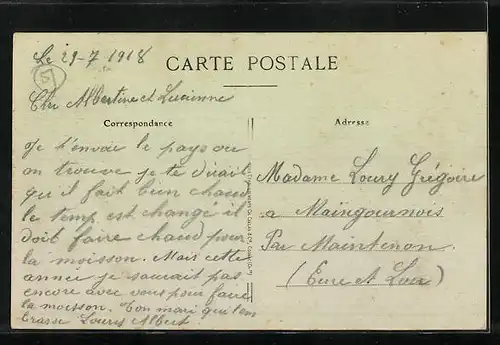 Le 29-7 1918
CARTE POSTALE
Cher Albertine et Lucienne
Correspondance
Adresse
Je t'envoie le pays ou
on trouve je te dirait
qu'il fait bien chaud
le temp est changé il
doit faire chaud pour
la moisson. Mais cette
année je saurait pas
encore avec vous pour faire
la moisson. Ton mari qui t'em
brasse Loury Albert
Madame Loury Grégoire
a Maingournois
Par Maintenon
(Eure et Loir)